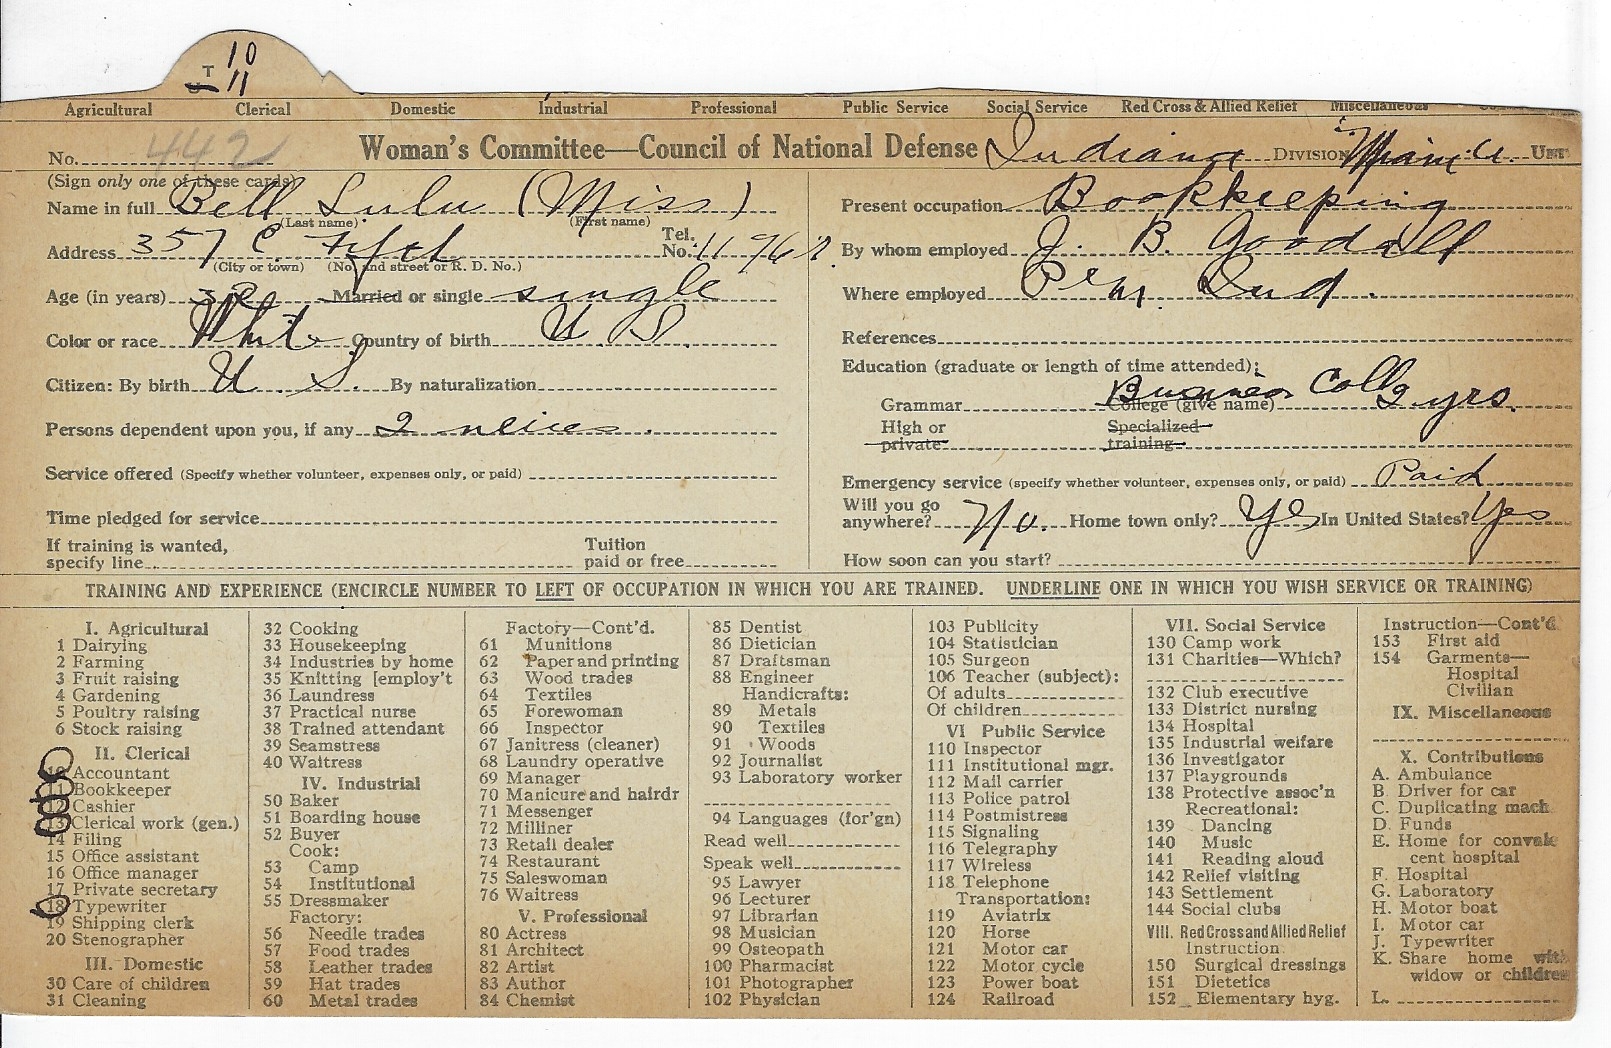 10
T 11
Agricultural Clerical Domestic Industrial Professional Public Service Social Service Red Cross & Allied Relief Miscellaneous
No. 442 Woman's Committee—Council of National Defense Indiana DIVISION Miami Co. UNIT
(Sign only one of these cards)
Name in full Bell Lulu (Miss)
(Last name) (First name)
Address 357 E. Fifth Tel. No.
(City or town) (No. and street or R. D. No.)
Age (in years) Married or single single
Color or race White Country of birth U. S.
Citizen: By birth U. S. By naturalization
Persons dependent upon you, if any 2 neices.
Service offered (Specify whether volunteer, expenses only, or paid)
Time pledged for service
If training is wanted, specify line Tuition paid or free
Present occupation Bookkeeping
By whom employed J. B. Goodall
Where employed Peru, Ind.
References
Education (graduate or length of time attended):
Business Coll 2 yrs.
Grammar College (give name)
High or private Specialized training
Emergency service (specify whether volunteer, expenses only, or paid) Paid
Will you go anywhere? No. Home town only? Yes In United States? Yes
How soon can you start?
TRAINING AND EXPERIENCE (ENCIRCLE NUMBER TO LEFT OF OCCUPATION IN WHICH YOU ARE TRAINED. UNDERLINE ONE IN WHICH YOU WISH SERVICE OR TRAINING)
I. Agricultural
1 Dairying
2 Farming
3 Fruit raising
4 Gardening
5 Poultry raising
6 Stock raising
II. Clerical
10 Accountant
11 Bookkeeper
12 Cashier
13 Clerical work (gen.)
14 Filing
15 Office assistant
16 Office manager
17 Private secretary
18 Typewriter
19 Shipping clerk
20 Stenographer
III. Domestic
30 Care of children
31 Cleaning
32 Cooking
33 Housekeeping
34 Industries by home
35 Knitting [employ't
36 Laundress
37 Practical nurse
38 Trained attendant
39 Seamstress
40 Waitress
IV. Industrial
50 Baker
51 Boarding house
52 Buyer
Cook:
53 Camp
54 Institutional
55 Dressmaker
Factory:
56 Needle trades
57 Food trades
58 Leather trades
59 Hat trades
60 Metal trades
Factory—Cont'd.
61 Munitions
62 Paper and printing
63 Wood trades
64 Textiles
65 Forewoman
66 Inspector
67 Janitress (cleaner)
68 Laundry operative
69 Manager
70 Manicure and hairdr
71 Messenger
72 Milliner
73 Retail dealer
74 Restaurant
75 Saleswoman
76 Waitress
V. Professional
80 Actress
81 Architect
82 Artist
83 Author
84 Chemist
85 Dentist
86 Dietician
87 Draftsman
88 Engineer
Handicrafts:
89 Metals
90 Textiles
91 Woods
92 Journalist
93 Laboratory worker
94 Languages (for'gn)
Read well
Speak well
95 Lawyer
96 Lecturer
97 Librarian
98 Musician
99 Osteopath
100 Pharmacist
101 Photographer
102 Physician
103 Publicity
104 Statistician
105 Surgeon
106 Teacher (subject):
Of adults
Of children
VI Public Service
110 Inspector
111 Institutional mgr.
112 Mail carrier
113 Police patrol
114 Postmistress
115 Signaling
116 Telegraphy
117 Wireless
118 Telephone
Transportation:
119 Aviatrix
120 Horse
121 Motor car
122 Motor cycle
123 Power boat
124 Railroad
VII. Social Service
130 Camp work
131 Charities—Which?
132 Club executive
133 District nursing
134 Hospital
135 Industrial welfare
136 Investigator
137 Playgrounds
138 Protective assoc'n
Recreational:
139 Dancing
140 Music
141 Reading aloud
142 Relief visiting
143 Settlement
144 Social clubs
VIII. Red Cross and Allied Relief
Instruction:
150 Surgical dressings
151 Dietetics
152 Elementary hyg.
Instruction—Cont'd
153 First aid
154 Garments—
Hospital
Civilian
IX. Miscellaneous
X. Contributions
A. Ambulance
B. Driver for car
C. Duplicating mach
D. Funds
E. Home for convale
cent hospital
F. Hospital
G. Laboratory
H. Motor boat
I. Motor car
J. Typewriter
K. Share home with
widow or children
L.